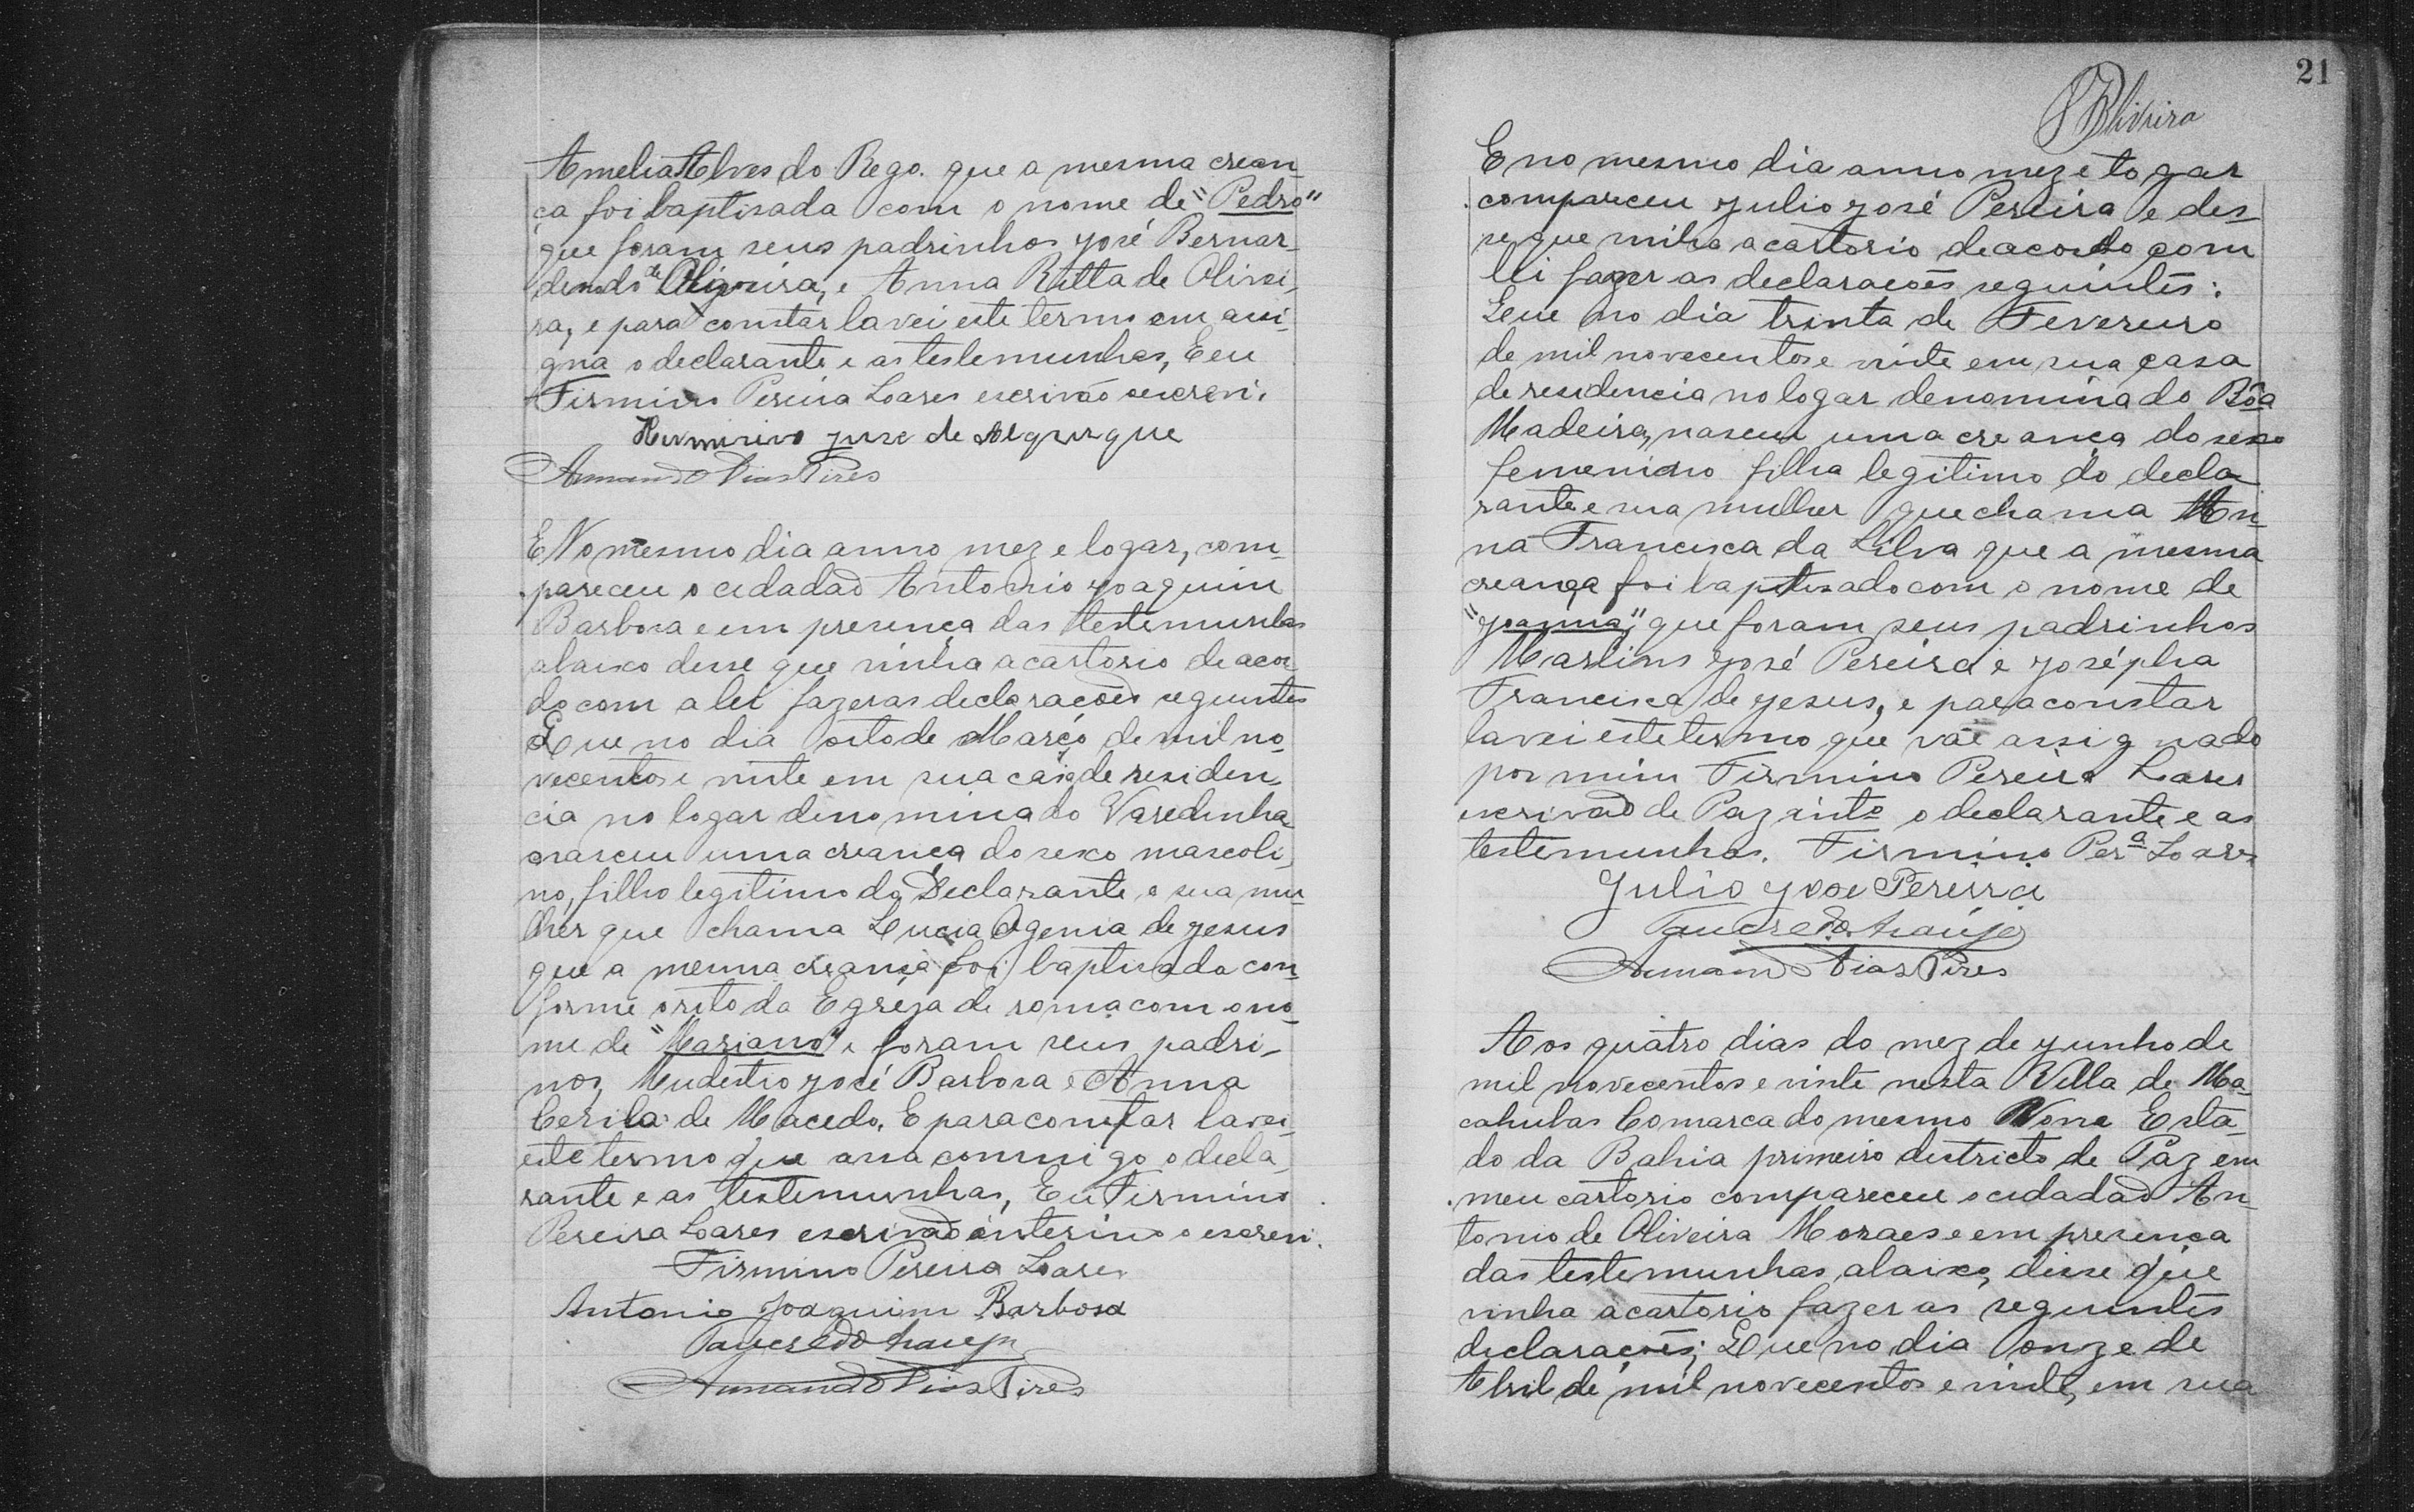 Amelia Alves do Rego. que a mesma crean
ça foi baptisada com o nome de "Pedro"
que foram seus padrinhos José Bernar-
dendo de Oliveira, e Anna Ritta de Olivei-
ra, e para constar lavei este termo em assi-
gna o declarante e as testemunhas, E eu
Firmino Pereira Soares escrivão escrevi.
José de Alquerque
Armando Dias Pires
E No mesmo dia anno mez e logar, com-
pareceu o cidadão Antonio Joaquim
Barbosa e em presença das testemunhas
abaixo disse que vinha a cartorio de acor-
do com a lei fazer as declarações seguintes
Que no dia oito de Março de mil no-
vecentos e vinte em sua casa de residen-
cia no logar denominado Varedinha
nasceu uma creança do sexo mascoli-
no, filho legitimo do Declarante e sua mu-
lher que chama Lucia Ogenia de Jesus
que a mesma creança foi baptisada con-
forme o rito da Egreja de roma com o no-
me de "Mariano" e foram seus padri-
nos, Mudestro José Barbosa e Anna
Cerila de Macedo. E para constar lavei
este termo que assna commigo o decla-
rante e as testemunhas, Eu Firmino
Pereira Soares escrivão interino o escrevi.
Firmino Pereira Soares
Antonio Joaquim Barbosa
Tancredo Araujo
Armando Dias Pires
21
Oliveira
E no mesmo dia anno mez e logar
compareceu Julio José Pereira e dis-
se que vinha a cartorio de acordo com
lei fazer as declarações seguintes:
Que no dia trinta de Fevereiro
de mil novecentos e vinte em sua casa
de residencia no logar denominado Bôa
Madeira, nasceu uma creança do sexo
femenino filha legitimo do decla-
rante e sua mulher que chama An-
na Francisca da Silva que a mesma
creança foi baptisado com o nome de
"Joanna", que foram seus padrinhos
Martins José Pereira e Josépha
Francisca de Jesus, e para constar
lavei este termo que vae assignado
por mim Firmino Pereira Soares
escrivão de Paz intº o declarante e as
testemunhas. Firmino Perª Soares
Julio Jose Pereira
Tancredo Araujo
Armando Dias Pires
Aos quatro dias do mez de Junho de
mil novecentos e vinte nesta Villa de Ma-
cahubas Comarca do mesmo Nome Esta-
do da Bahia primeiro districto de Paz em
meu cartorio compareceu o cidadão An-
tonio de Oliveira Moraes e em presença
das testemunhas abaixo, disse que
vinha a cartorio fazer as seguintes
declarações; Que no dia onze de
Abril de mil novecentos e vinte, em sua